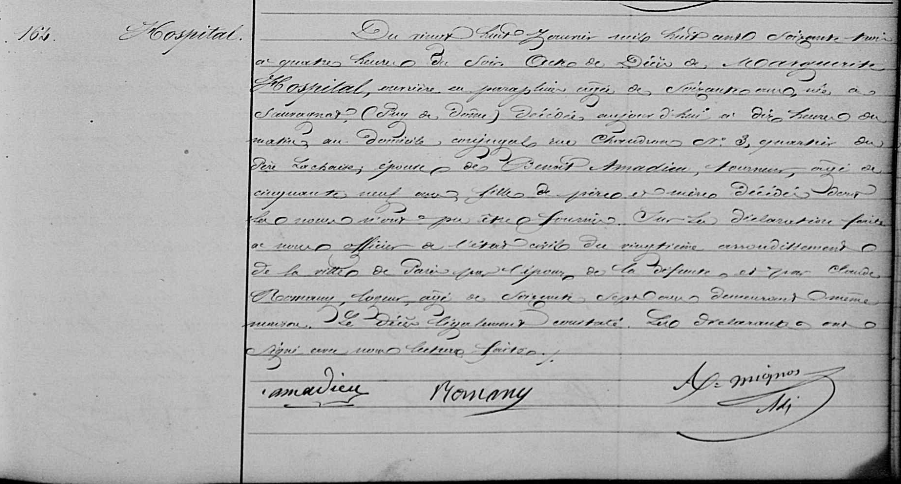 164. Hospital.
Du vingt huit Janvier mil huit cent Soixante trois
à quatre heures du Soir. Acte de Décès de Marguerite
Hospital, ouvrière en parapluies âgée de Soixante ans, née à
(Puy de Dôme) Décédée aujourd'hui à dix heures du
matin au domicile conjugal rue N° 3, quartier du
Père Lachaise; épouse de Benoît Amadieu, tourneur, âgé de
cinquante neuf ans, fille de père et mère décédés dont
les noms n'ont pu être fournis. Sur la déclaration faite
à nous officier de l'état civil du vingtième arrondissement
de la ville de Paris par l'époux de la défunte et par Claude
Romany, âgé de Soixante Sept ans demeurant même
maison. Le décès légalement constaté. Les déclarants ont
signé avec nous lecture faite./.
amadieu Romany